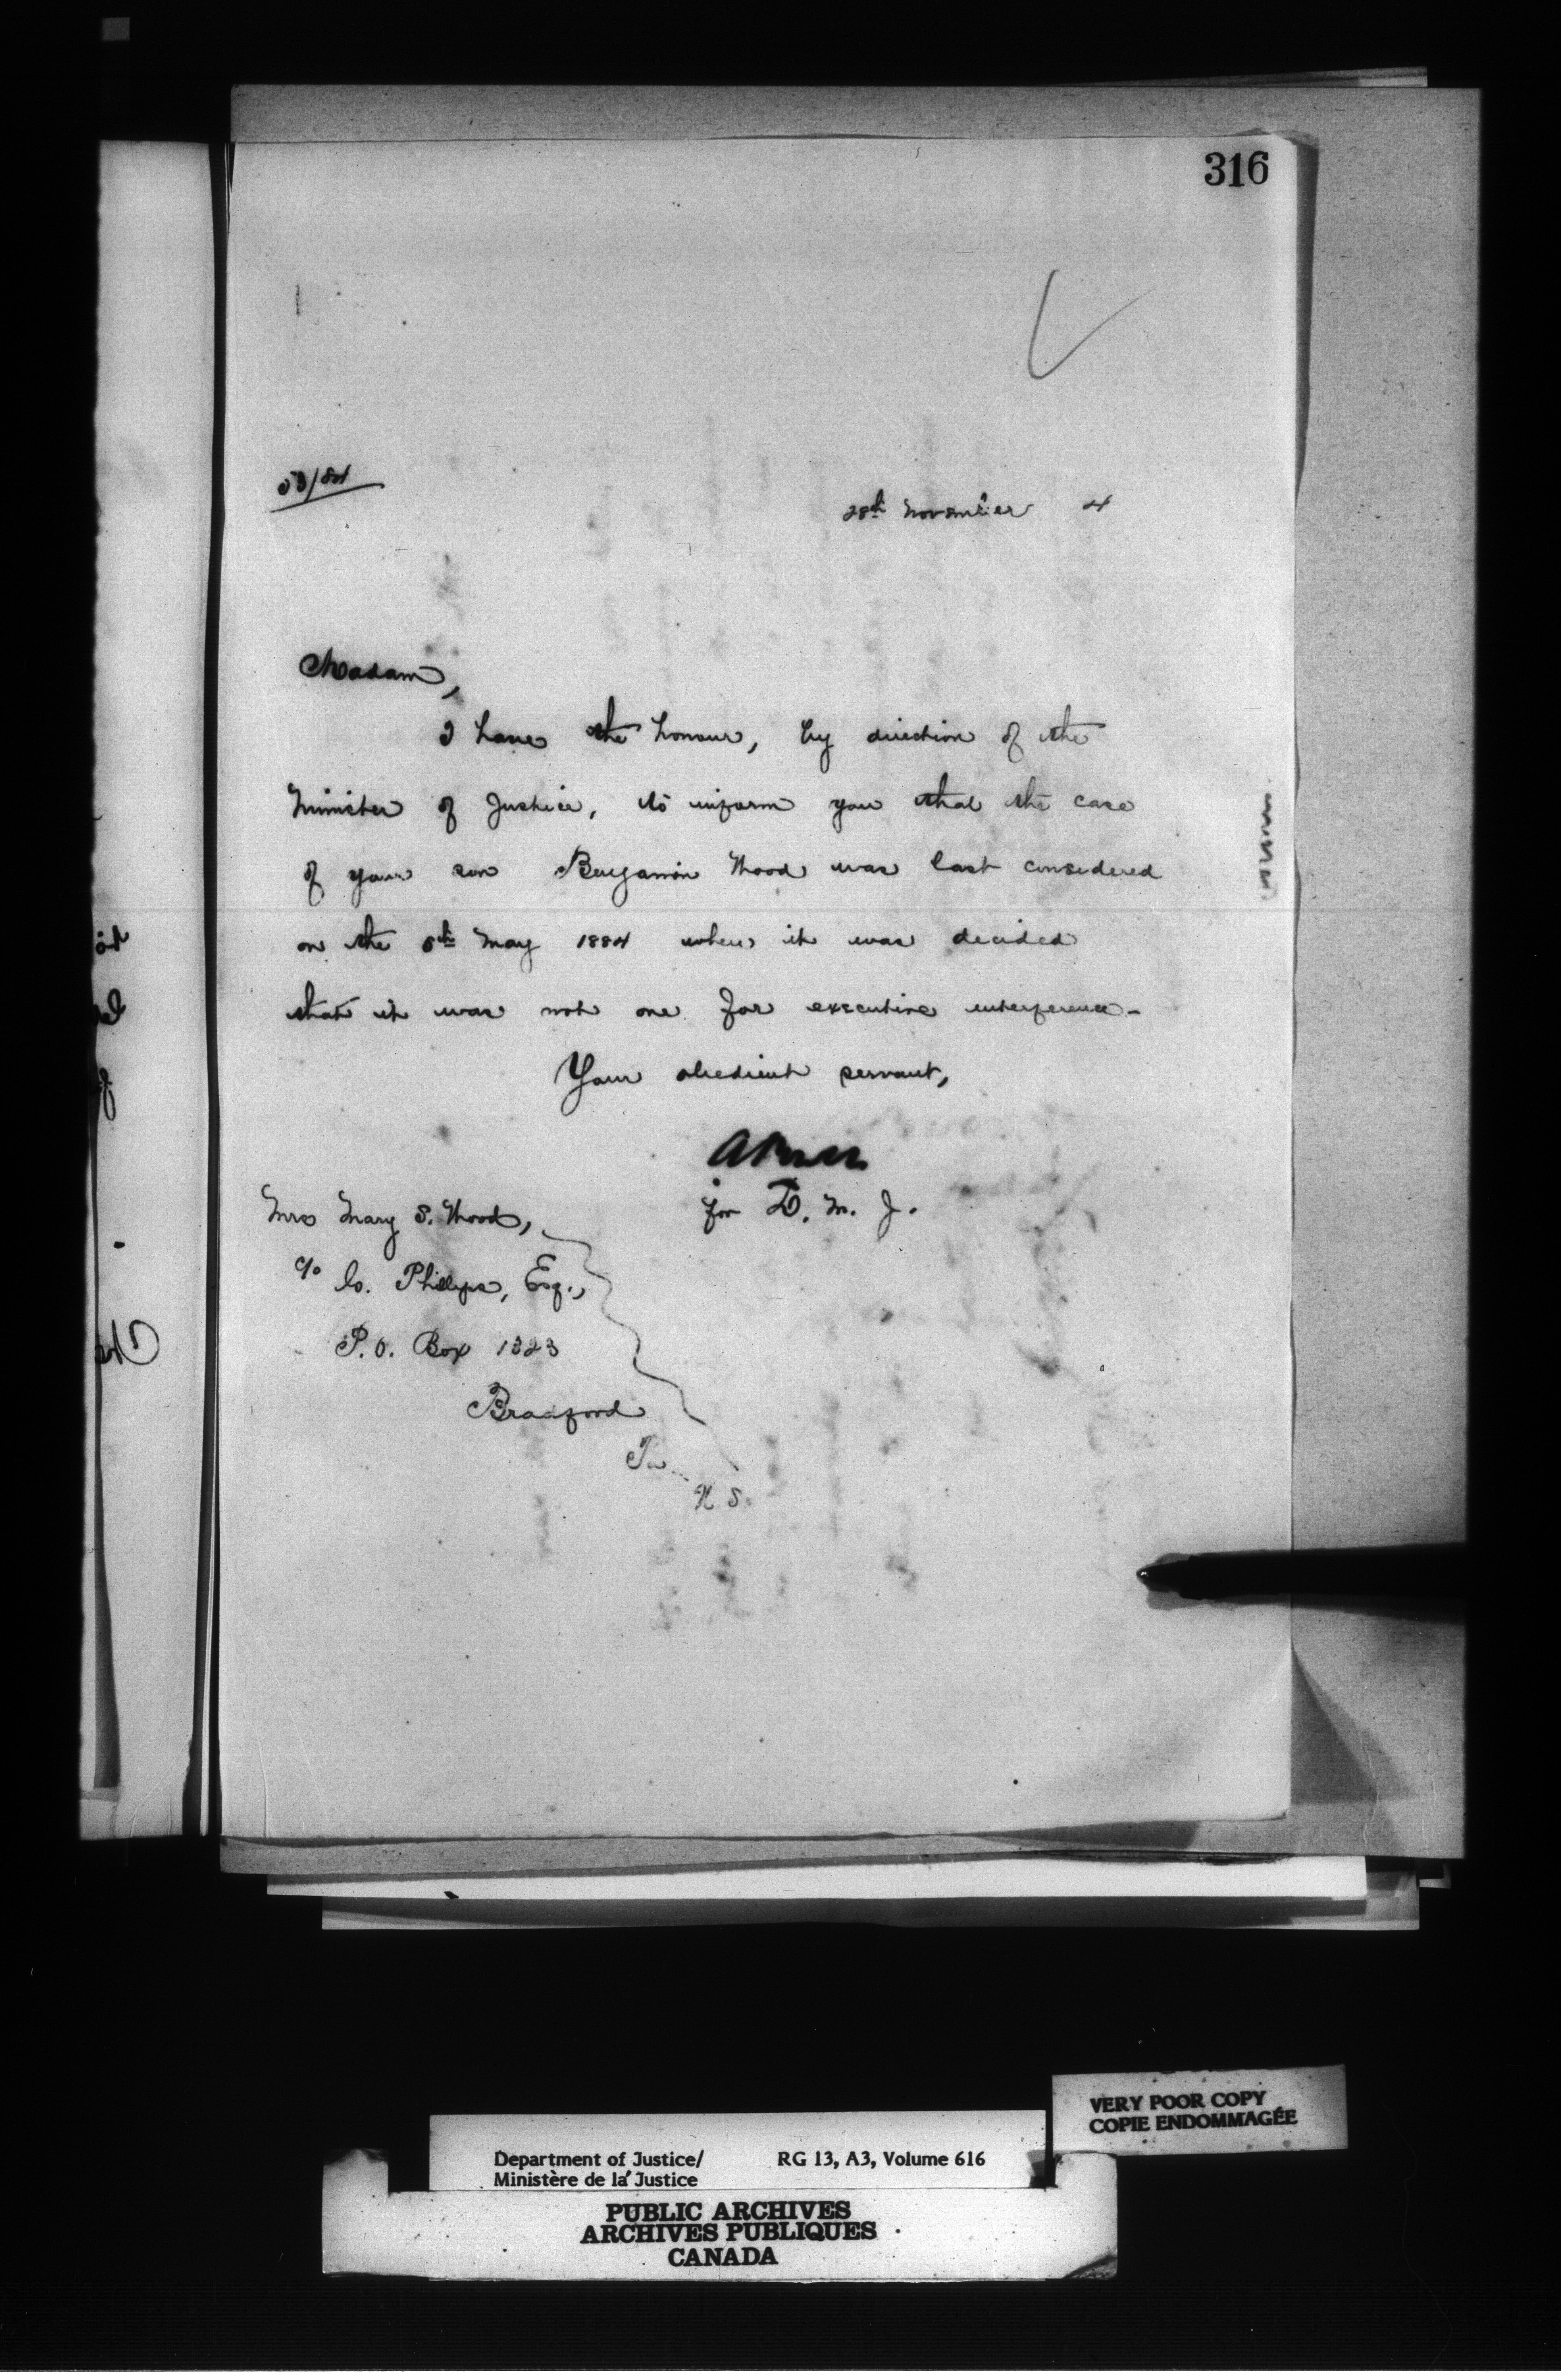 316
53/84
28th November 4
Madam,
I have the honour, by direction of the
Minister of Justice, to inform you that the case
of your son Benjamin Wood was last considered
on the 5th May 1884 when it was decided
that it was not one for executive interference-
Your obedient servant,
for D. M. J.
Mrs Mary S. Wood,
c/o Phillips, Esq.,
P.O. Box 1323
Bradford
VERY POOR COPY
COPIE ENDOMMAGÉE
Department of Justice/ RG 13, A3, Volume 616
Ministère de la Justice
PUBLIC ARCHIVES
ARCHIVES PUBLIQUES
CANADA